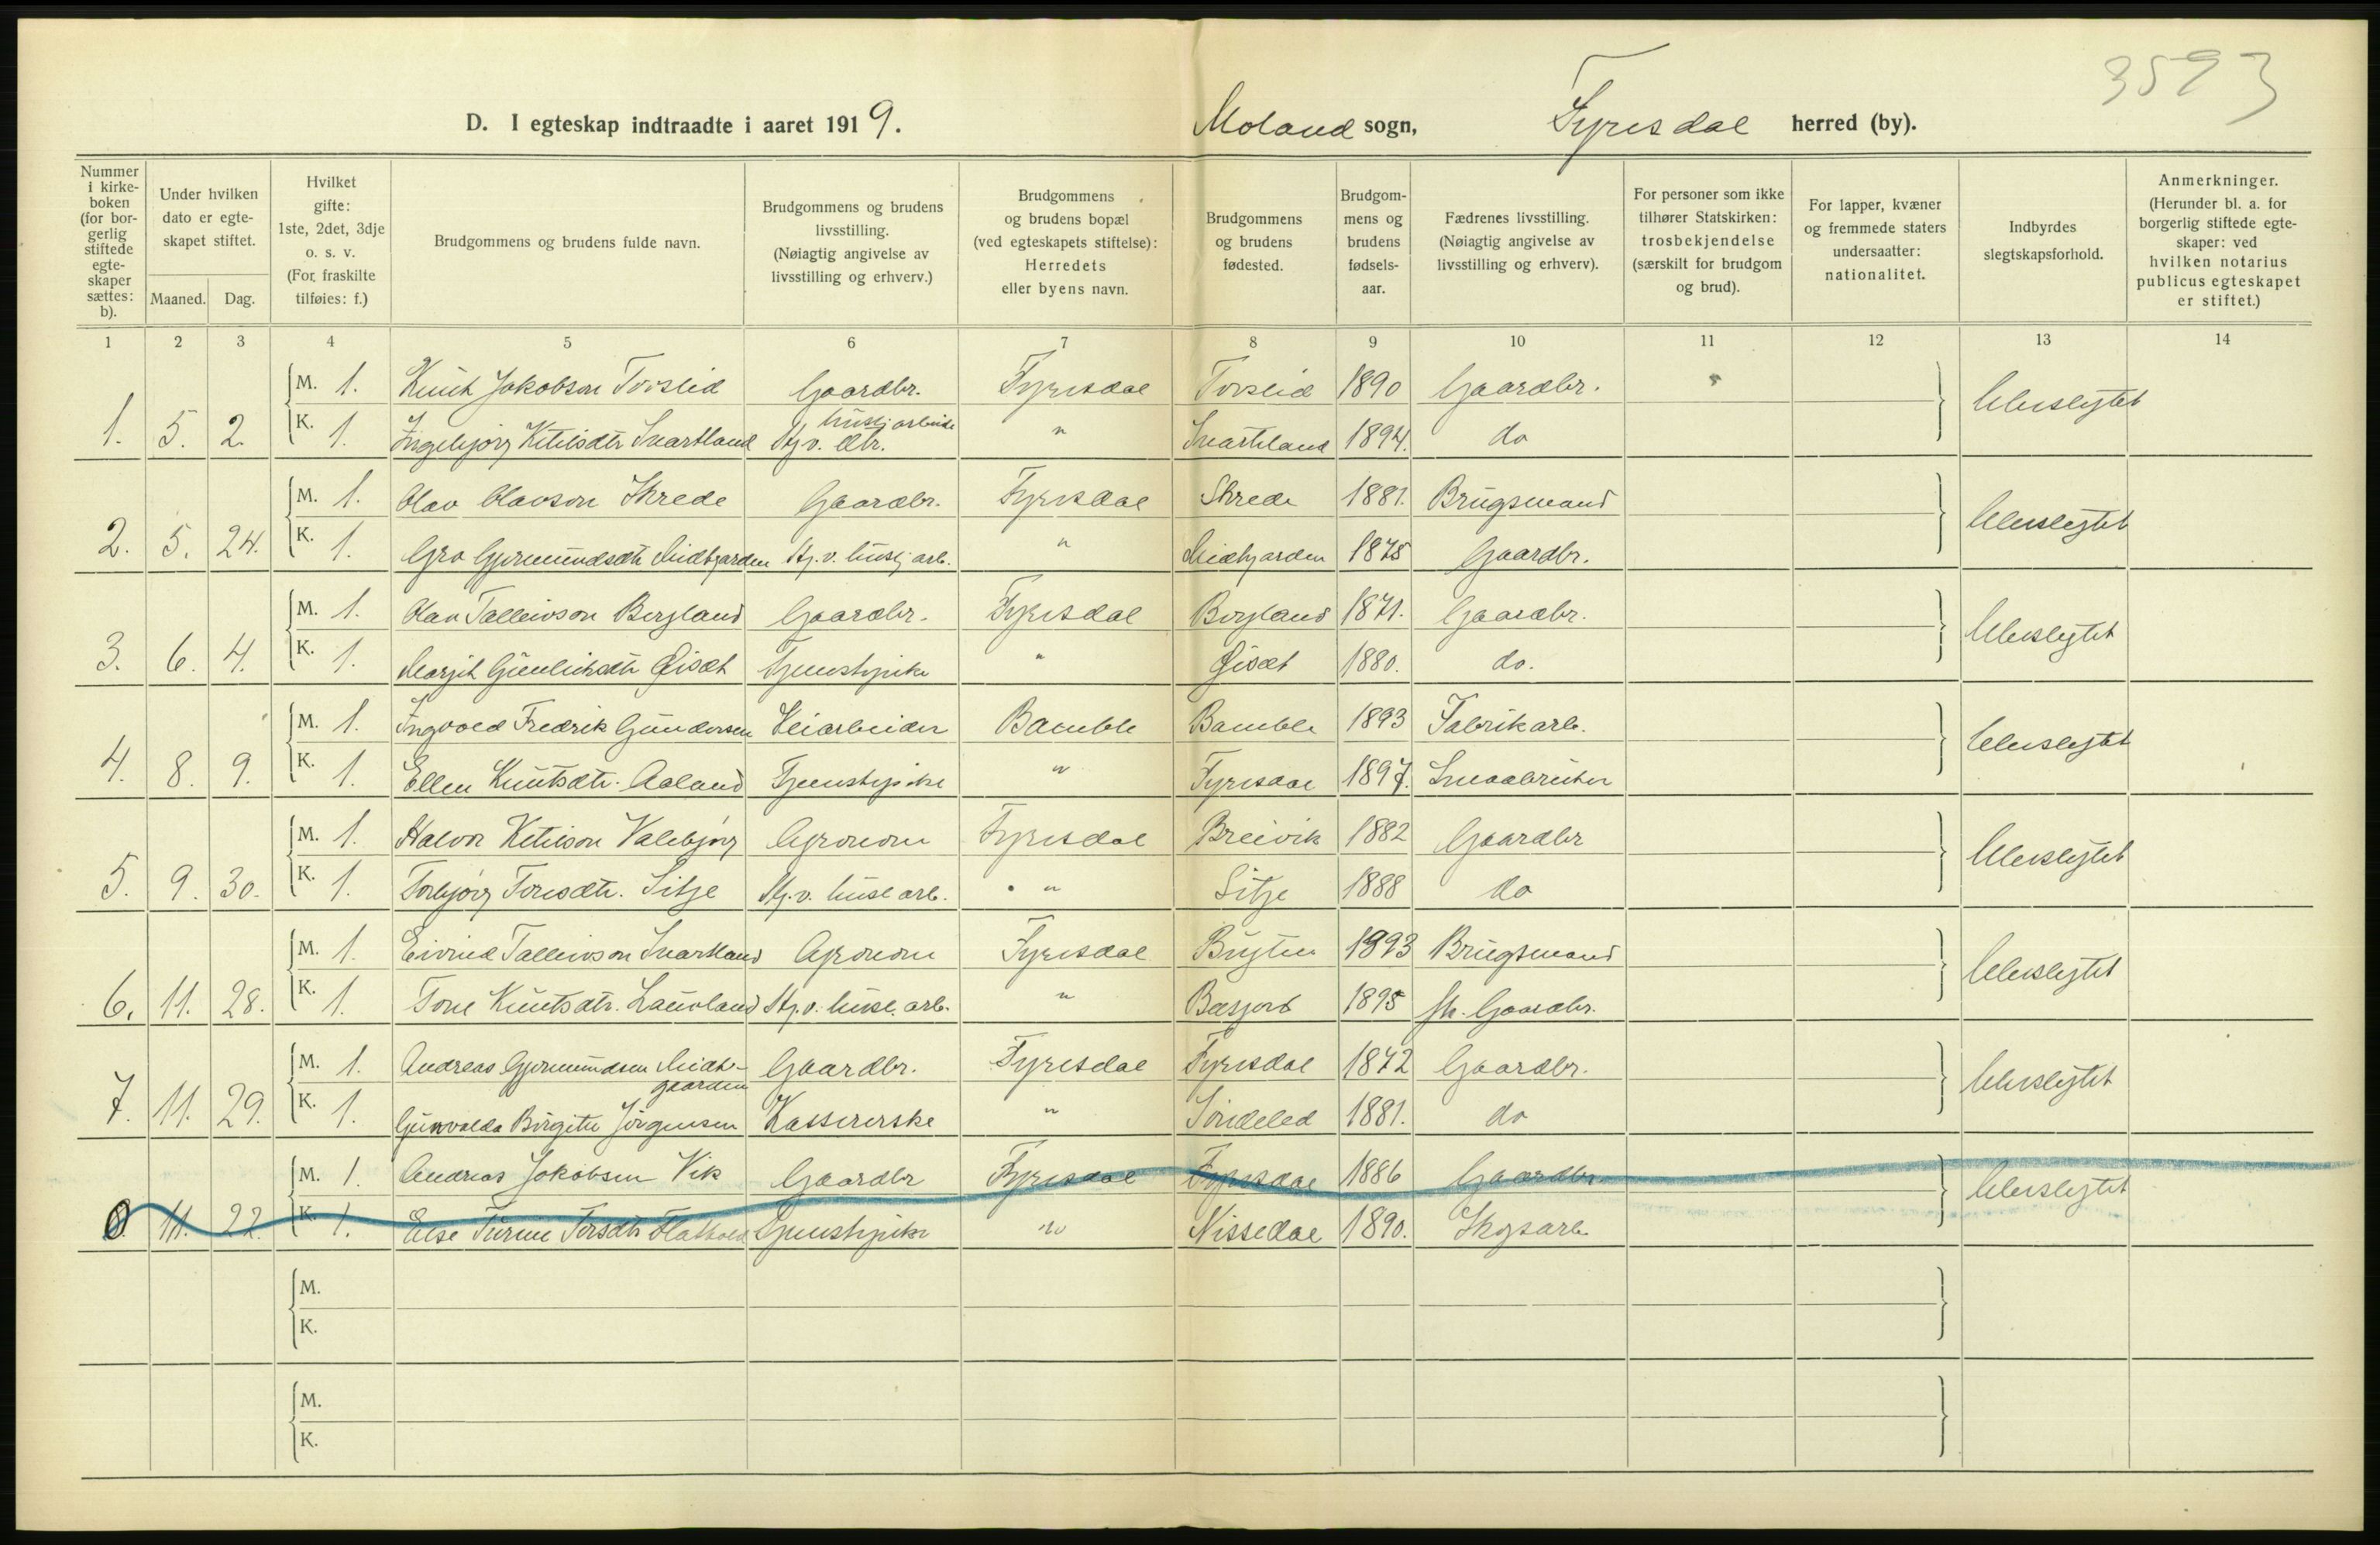 3593
D. I egteskap indtraadte i aaret 1919. Moland sogn, Fyresdal herred (by).
Nummer i kirkeboken (for borgerlig stiftede egteskaper sættes: b).
Under hvilken dato er egteskapet stiftet.
Maaned. Dag.
Hvilket gifte: 1ste, 2det, 3dje o. s. v. (For fraskilte tilføies: f.)
Brudgommens og brudens fulde navn.
Brudgommens og brudens livsstilling. (Nøiagtig angivelse av livsstilling og erhverv.)
Brudgommens og brudens bopæl (ved egteskapets stiftelse): Herredets eller byens navn.
Brudgommens og brudens fødested.
Brudgommens og brudens fødselsaar.
Fædrenes livsstilling. (Nøiagtig angivelse av livsstilling og erhverv).
For personer som ikke tilhører Statskirken: trosbekjendelse (særskilt for brudgom og brud).
For lapper, kvæner og fremmede staters undersaatter: nationalitet.
Indbyrdes slegtskapsforhold.
Anmerkninger. (Herunder bl. a. for borgerlig stiftede egteskaper: ved hvilken notarius publicus egteskapet er stiftet.)
1 2 3 4 5 6 7 8 9 10 11 12 13 14
M. 1. Knut Jakobson Torslid Gaardbr. Fyresdal Torslid 1890 Gaardbr. Ubeslegtet
1. 5. 2. K. 1. Ingebjørg Ketilsdtr Svartland Hj.v. huslj arbeide dtr. " Svartland 1894. do
M. 1. Olav Olavson Skrede Gaardbr. Fyresdal Skrede 1881. Brugsmand Ubeslegtet
2. 5. 24. K. 1. Gro Gjermundsdtr Midtgarden Hj.v. huslj arb. " Midtgarden 1875 Gaardbr.
M. 1. Olav Talleivson Bergland Gaardbr. Fyresdal Bergland 1871. Gaardbr. Ubeslegtet
3. 6. 4. K. 1. Margit Gunleiksdtr Qisæt Tjenestepike " Qisæt 1880. do.
M. 1. Ingvald Fredrik Gundersen Veiarbeider Bamble Bamble 1893 Fabrikarb. Ubeslegtet
4. 8. 9. K. 1. Ellen Knutsdtr. Aaland Tjenestepike " Fyresdal 1897. Smaabruker
M. 1. Halvor Ketilson Valebjørg Agronom Fyresdal Breivik 1882 Gaardbr Ubeslegtet
5. 9. 30. K. 1. Torbjørg Toresdtr. Sitje Hj.v. husl arb. " Sitje 1888 do
M. 1. Eivind Talleivson Svartland Agronom Fyresdal 1893 Brugsmand Ubeslegtet
6. 11. 28. K. 1. Tone Knutsdtr. Lauvland Hj.v. husl. arb. " 1895 Gaardbr.
M. 1. Andreas Gjermundsen Midtgaarden Gaardbr. Fyresdal Fyresdal 1872 Gaardbr. Ubeslegtet
7. 11. 29. K. 1. Gunvalda Birgitte Jørgensen Kassererske " Søndeled 1881. do
M. 1. Andreas Jakobsen Vik Gaardbr Fyresdal Fyresdal 1886 Gaardbr Ubeslegtet
11. 22. K. 1. Else Torsdtr Tjenestepike " Nissedal 1890. Skogsarb
M.
K.
M.
K.